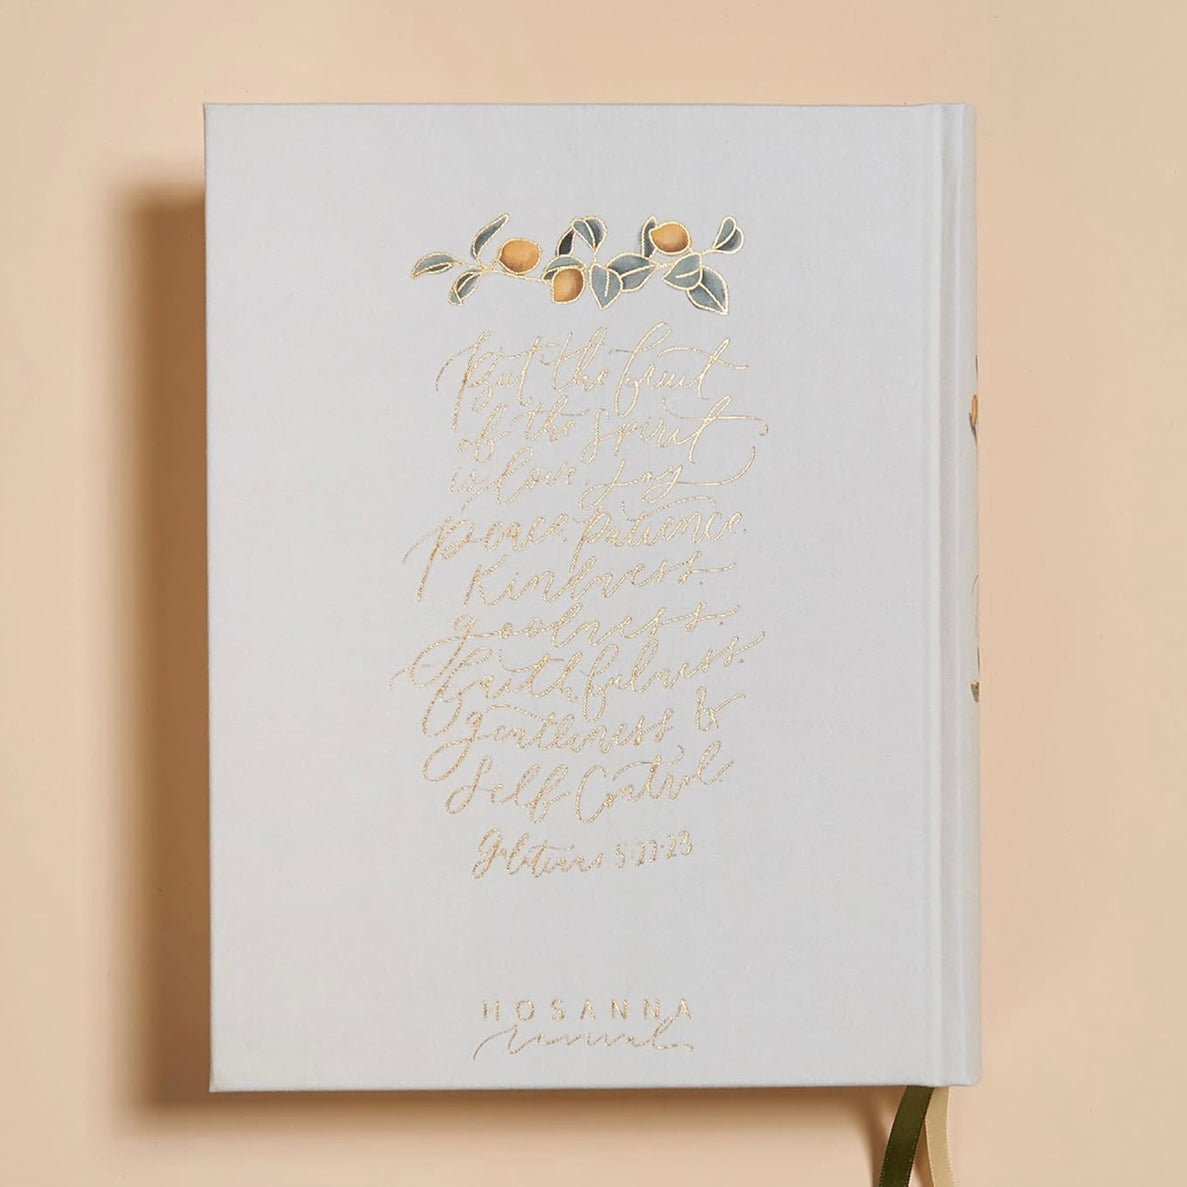 But the fruit
of the spirit
is love. joy
peace. patience.
Kindness.
goodness.
faithfulness.
gentleness &
Self Control.
Galatians 5:22-23
HOSANNA
revival